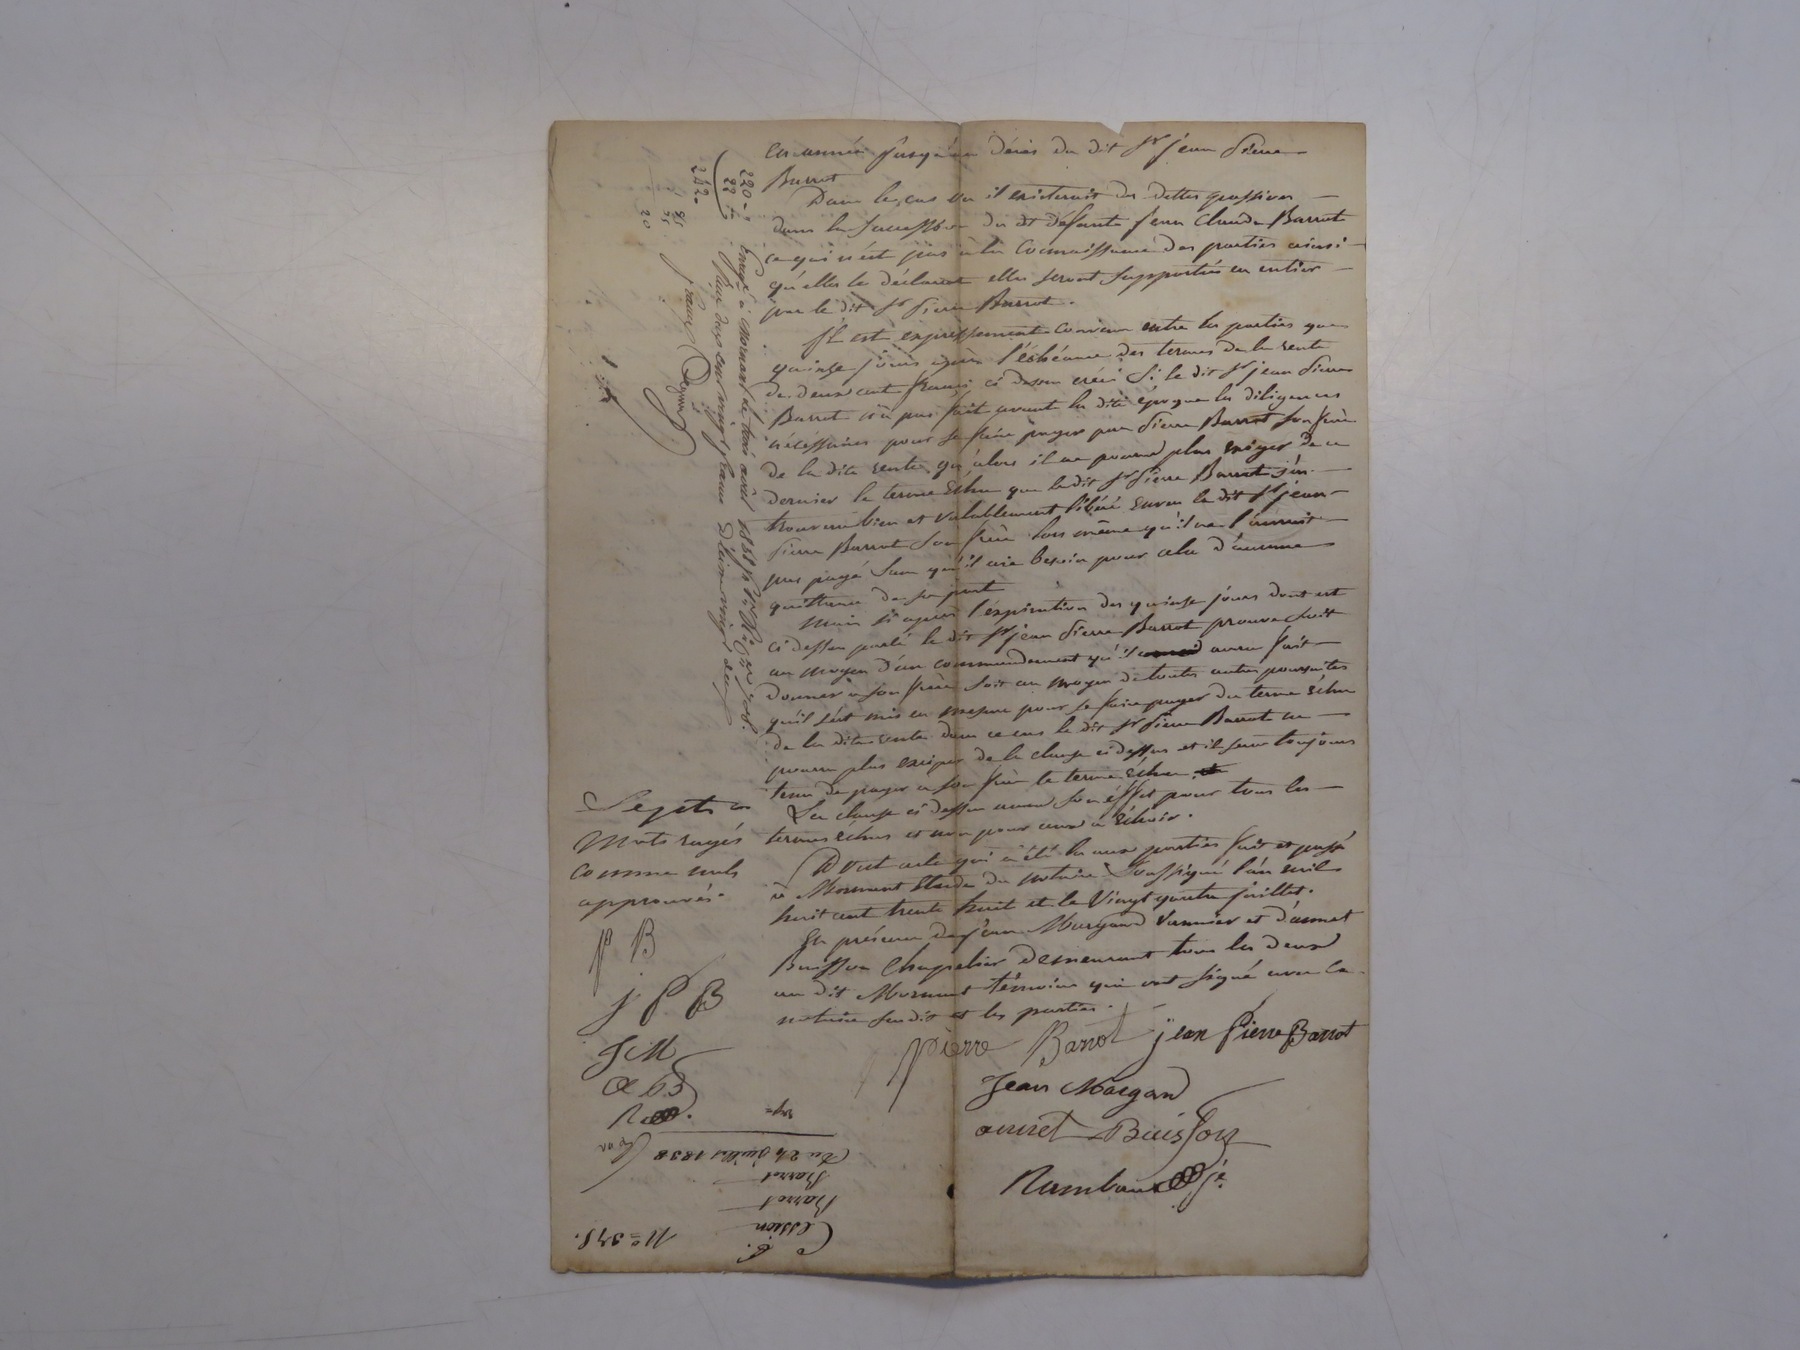 en année jusqu'au décès du dit Sr jean Pierre
Barrot
Dans le cas ou il existerait des dettes passives
dans la succession du dt défunt Jean Claude Barrot
ce qui n'est pas à la connaissance des parties ainsi
qu'elles le déclarent elles seront supportées en entier
par le dit Sr Pierre Barrot.
Il est expressément convenu entre les parties que
quinze jours après l'échéance des termes de la rente
de deux cent francs ci dessus créée Si le dit Sr jean Pierre
Barrot n'a pas fait avant la dite époque les diligences
nécéssaires pour se faire payer par Pierre Barrot son frère
de la dite rente, qu'alors il ne pourra plus exiger de ce
dernier le terme échu que le dit Sr Pierre Barrot s'en
trouvera bien et valablement libéré envers le dit Sr jean
Pierre Barrot son frère lors même qu'il ne l'aurait
pas payé sans qu'il aie besoin pour cela d'aucune
quittance de sa part
Mais si après l'éxpiration des quinze jours dont est
ci dessus parlé le dit Sr jean Pierre Barrot prouve soit
au moyen d'un commandement qu'il aura fait
donner à son frère soit au moyen de toutes autres poursuites
qu'il s'est mis en mesure pour se faire payer du terme échu
de la dite rente dans ce cas le dit Sr Pierre Barrot ne
pourra plus exciper de la clause ci dessus et il sera toujours
tenu de payer a son frère le terme échu
La clause ci dessus aura son éffet pour tous les
termes échus et non pour ceux à échoir.
Dont acte qui a été lu aux parties fait et passé
à Mornant Etude du notaire Soussigné l'an mil
huit cent trente huit et le Vingt quatre juillet.
En présence de jean Margand vannier et d'aimet
Buisson Chapelier demeurant tous les deux
au dit Mornant témoins qui ont signé avec le
notaire susdit et les parties.
pierre Barrot jean Pierre Barrot
Jean Margand
aimet Buisson
Rambaud
Sept
Mots rayés
comme nuls
approuvés
P B
j P B
J M
a B
R
220-"
22
242-
Enregé à Mornant le trois août 1838
Reçu deux cent vingt francs décime vingt deux
francs
N° 375.
Cession
Barrot
Barrot
Du 24 Juillet 1838